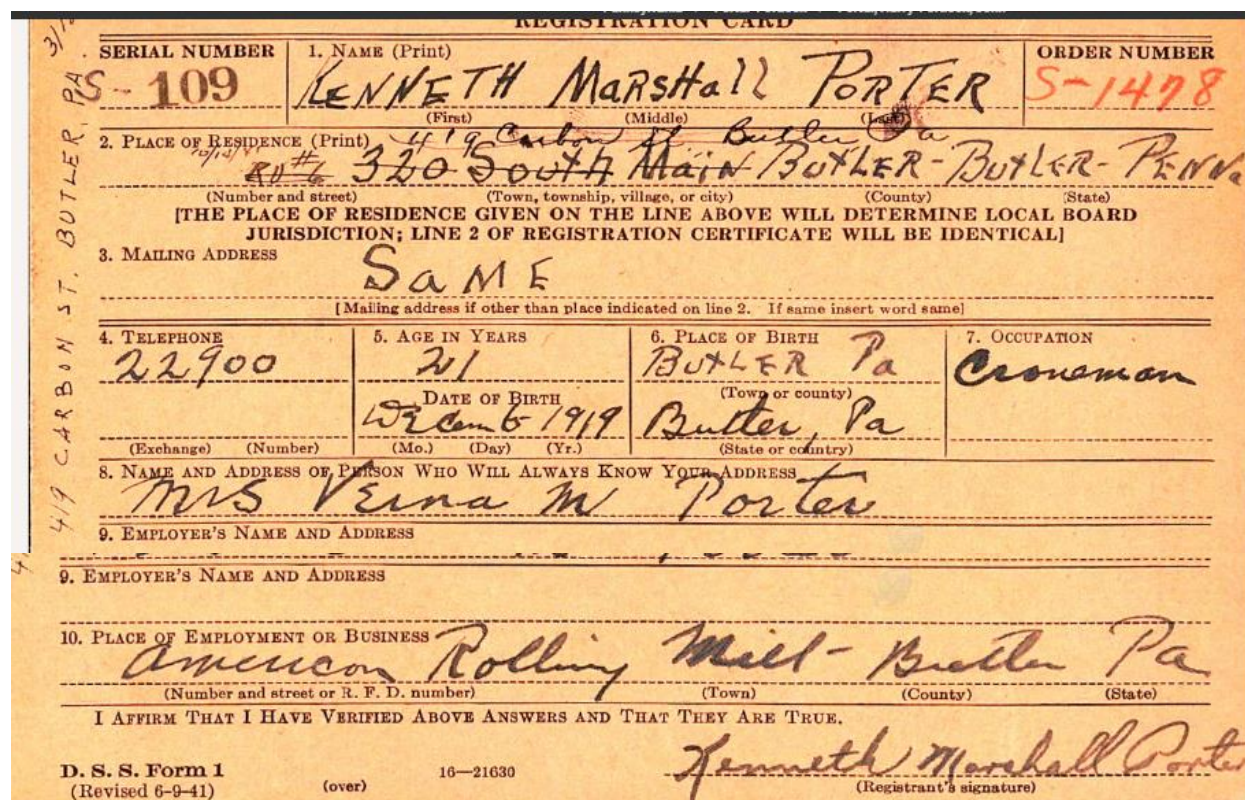 REGISTRATION CARD
SERIAL NUMBER
S- 109
1. NAME (Print)
KENNETH MaRSHall PORTER
(First) (Middle) (Last)
ORDER NUMBER
S-1478
2. PLACE OF RESIDENCE (Print) 419 Carbon St Butler Pa
RD #6 320 South Main BUTLER- BUTLER- PENNa
(Number and street) (Town, township, village, or city) (County) (State)
[THE PLACE OF RESIDENCE GIVEN ON THE LINE ABOVE WILL DETERMINE LOCAL BOARD
JURISDICTION; LINE 2 OF REGISTRATION CERTIFICATE WILL BE IDENTICAL]
3. MAILING ADDRESS
SaME
[Mailing address if other than place indicated on line 2. If same insert word same]
4. TELEPHONE
22900
(Exchange) (Number)
5. AGE IN YEARS
21
DATE OF BIRTH
6 1919
(Mo.) (Day) (Yr.)
6. PLACE OF BIRTH
BUTLER Pa
(Town or county)
Butler, Pa
(State or country)
7. OCCUPATION
Craneman
8. NAME AND ADDRESS OF PERSON WHO WILL ALWAYS KNOW YOUR ADDRESS
Mrs Verna M Porter
9. EMPLOYER'S NAME AND ADDRESS
9. EMPLOYER'S NAME AND ADDRESS
10. PLACE OF EMPLOYMENT OR BUSINESS
American Rolling Mill- Butler Pa
(Number and street or R. F. D. number) (Town) (County) (State)
I AFFIRM THAT I HAVE VERIFIED ABOVE ANSWERS AND THAT THEY ARE TRUE.
Kenneth Marshall Porter
(Registrant's signature)
D. S. S. Form 1
(Revised 6-9-41)
(over)
16—21630
419 CARBON ST. BUTLER, PA.